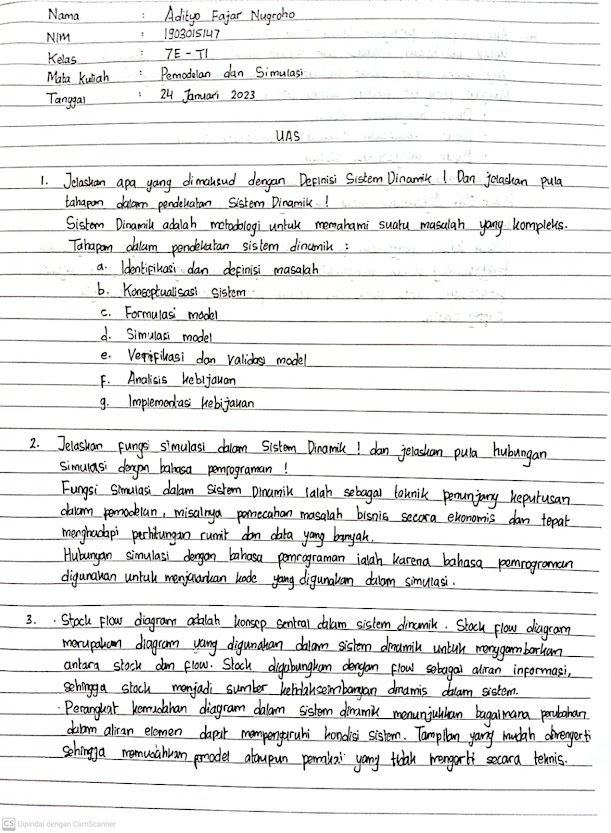 Nama : Adityo Fajar Nugroho
NIM : 1903015147
Kelas : 7E - TI
Mata kuliah : Pemodelan dan Simulasi
Tanggal : 24 Januari 2023
UAS
1. Jelaskan apa yang dimaksud dengan Definisi Sistem Dinamik ! Dan jelaskan pula
tahapan dalam pendekatan Sistem Dinamik !
Sistem Dinamik adalah metodologi untuk memahami suatu masalah yang kompleks.
Tahapan dalam pendekatan sistem dinamik :
a. Identifikasi dan definisi masalah
b. Konseptualisasi sistem
c. Formulasi model
d. Simulasi model
e. Verifikasi dan validasi model
f. Analisis kebijakan
g. Implementasi kebijakan
2. Jelaskan fungsi simulasi dalam Sistem Dinamik ! dan jelaskan pula hubungan
simulasi dengan bahasa pemrograman !
Fungsi simulasi dalam sistem Dinamik ialah sebagai teknik penunjang keputusan
dalam pemodelan, misalnya pemecahan masalah bisnis secara ekonomis dan tepat
menghadapi perhitungan rumit dan data yang banyak.
Hubungan simulasi dengan bahasa pemrograman ialah karena bahasa pemrograman
digunakan untuk menjalankan kode yang digunakan dalam simulasi.
3. · Stock flow diagram adalah konsep sentral dalam sistem dinamik. Stock flow diagram
merupakan diagram yang digunakan dalam sistem dinamik untuk menggambarkan
antara stock dan flow. Stock digabungkan dengan flow sebagai aliran informasi,
sehingga stock menjadi sumber ketidakseimbangan dinamis dalam sistem.
· Perangkat kemudahan diagram dalam sistem dinamik menunjukkan bagaimana perubahan
dalam aliran elemen dapat mempengaruhi kondisi sistem. Tampilan yang mudah dimengerti
sehingga memudahkan pmodel ataupun pemakai yang tidak mengerti secara teknis.
CS Dipindai dengan CamScanner